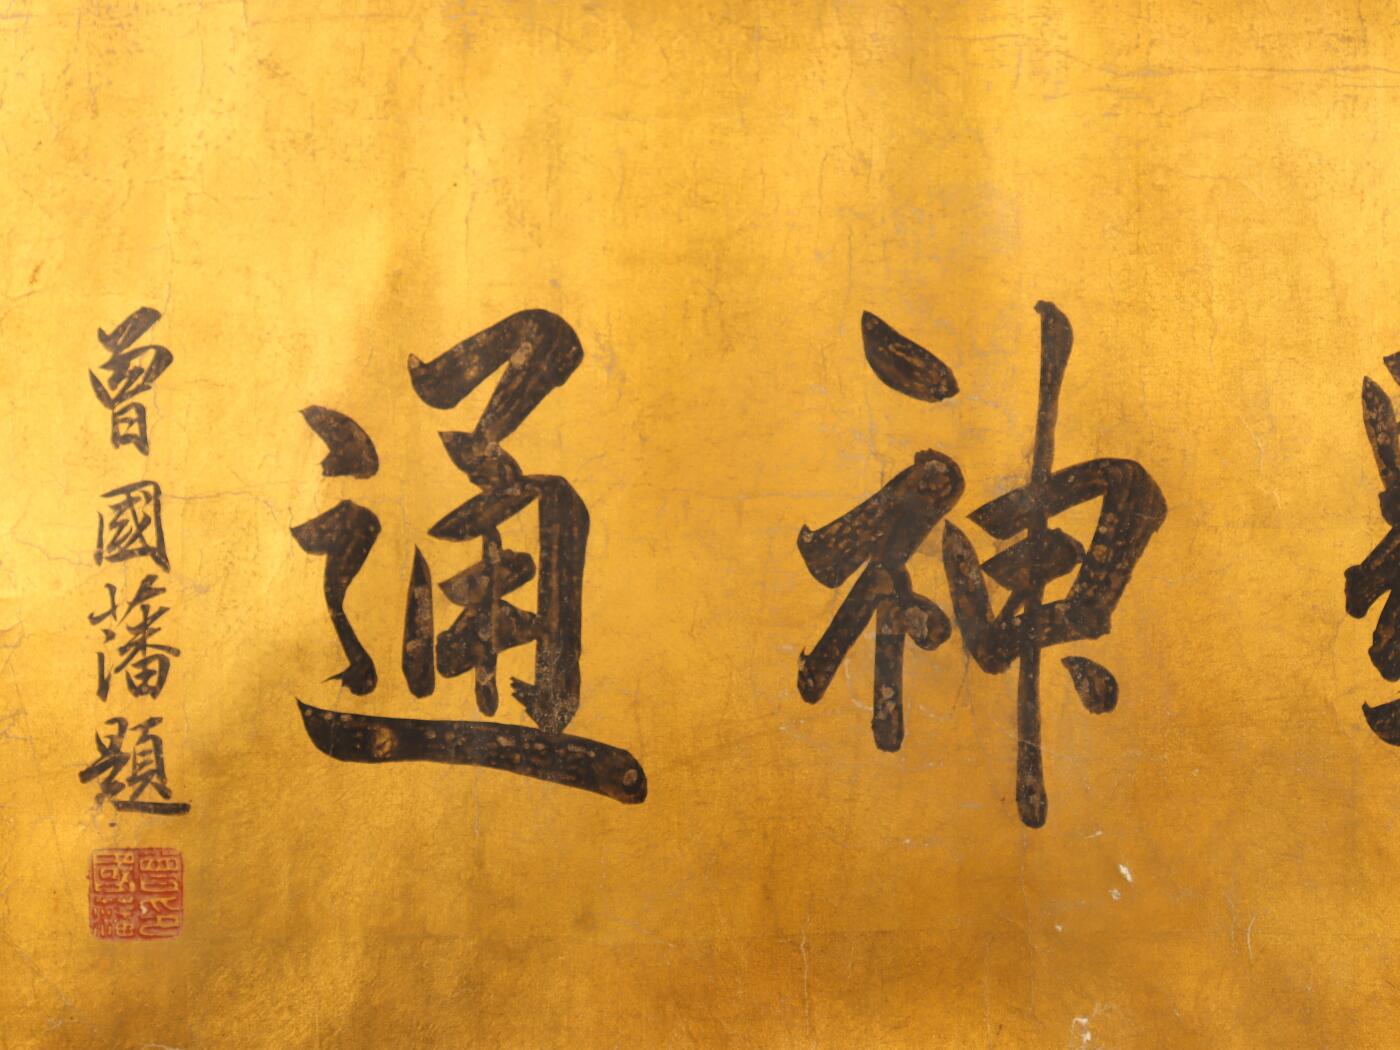 神通
曾國藩題
曾國藩印